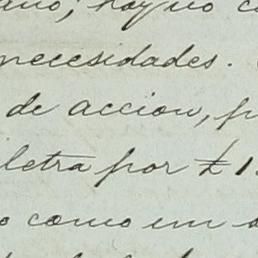 hoy no
necesidades.
de accion,
letra por £1
como un